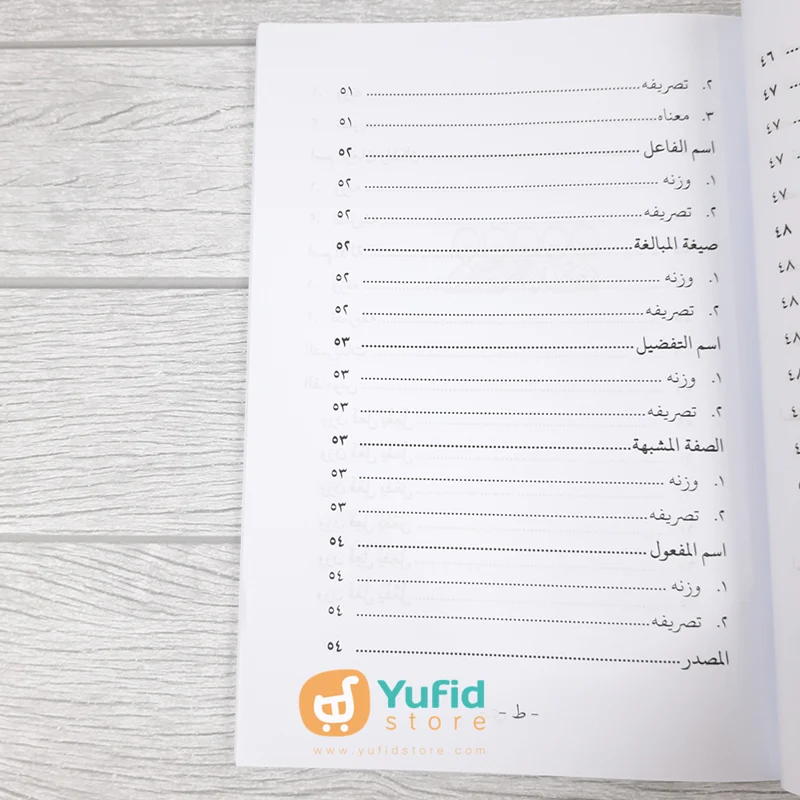 ٢. تصريفه ........ ٥١
٣. معناه ........ ٥١
اسم الفاعل ........ ٥٢
١. وزنه ........ ٥٢
٢. تصريفه ........ ٥٢
صيغة المبالغة ........ ٥٢
١. وزنه ........ ٥٢
٢. تصريفه ........ ٥٢
اسم التفضيل ........ ٥٣
١. وزنه ........ ٥٣
٢. تصريفه ........ ٥٣
الصفة المشبهة ........ ٥٣
١. وزنه ........ ٥٣
٢. تصريفه ........ ٥٣
اسم المفعول ........ ٥٤
١. وزنه ........ ٥٤
٢. تصريفه ........ ٥٤
المصدر ........ ٥٤
- ط -
٤٦
٤٧
٤٧
٤٧
٤٧
٤٨
٤٨
٤٨
٤٨
٤٨
Yufid
store
www.yufidstore.com